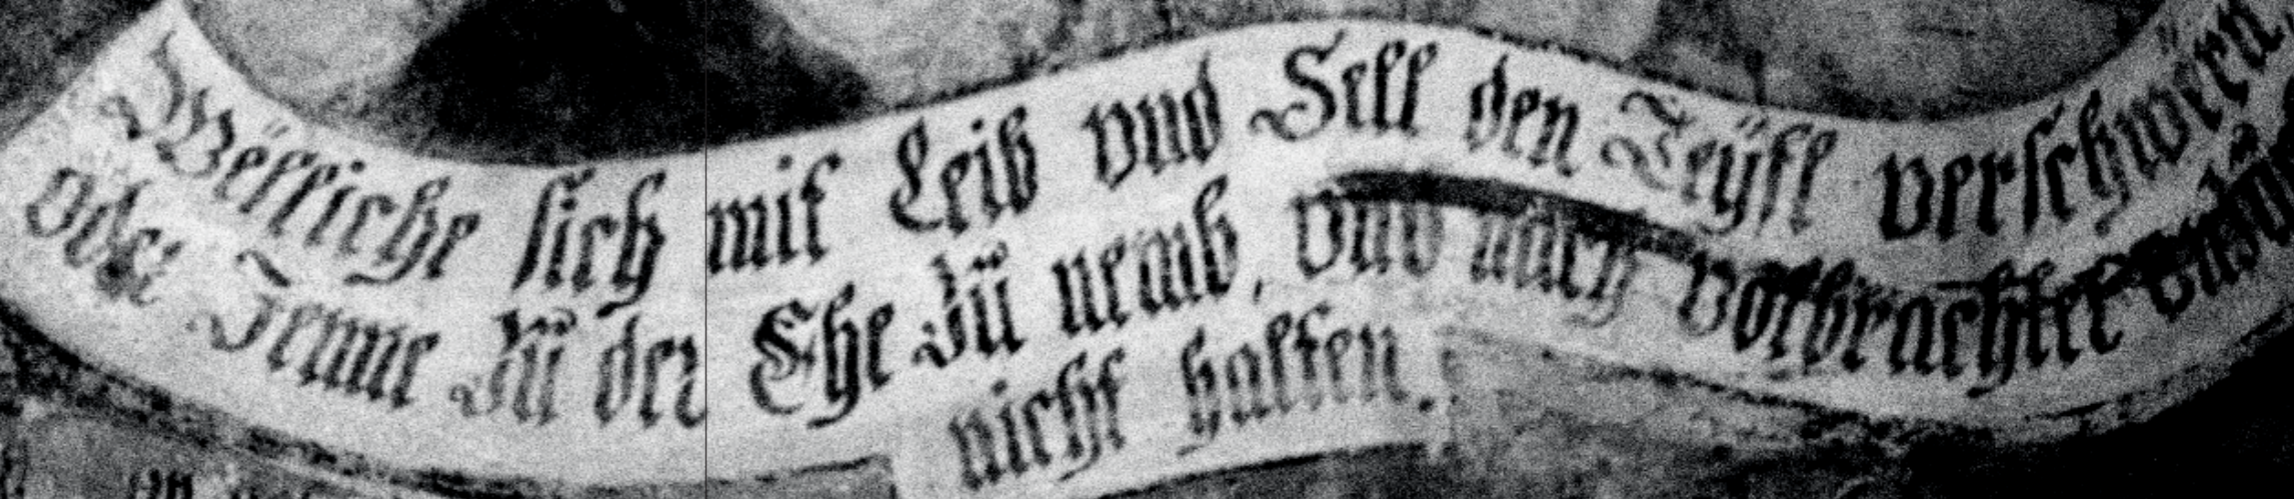 Wölliche sich mit Leib vnd Sell den Teÿfl verschwörn
oder Jenne Zü der Ehe Zü nemb, vnd nach volbrachter
nicht halten.